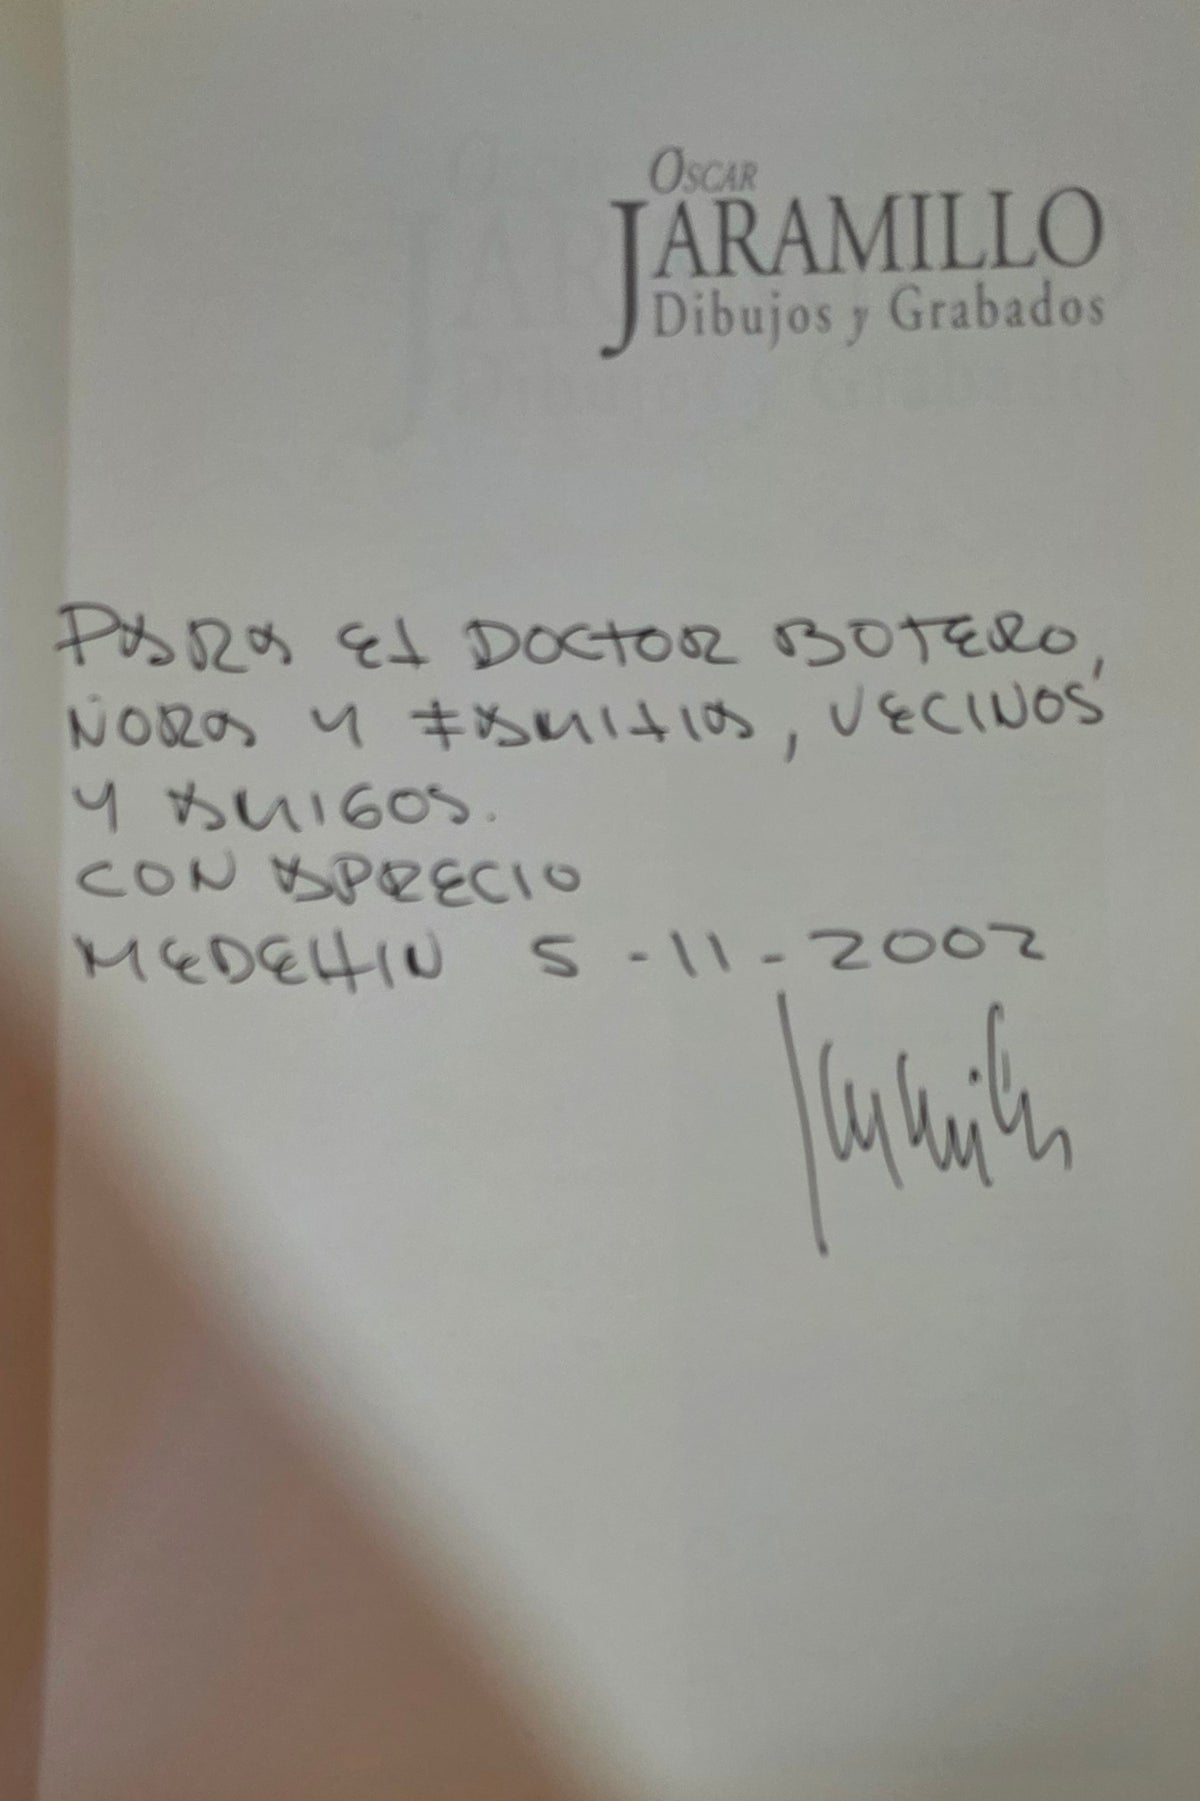 OSCAR
JARAMILLO
Dibujos y Grabados
PARA EL DOCTOR BOTERO,
NORA Y FAMILIA, VECINOS
Y AMIGOS.
CON APRECIO
MEDELLIN 5-11-2002
Jaramillo